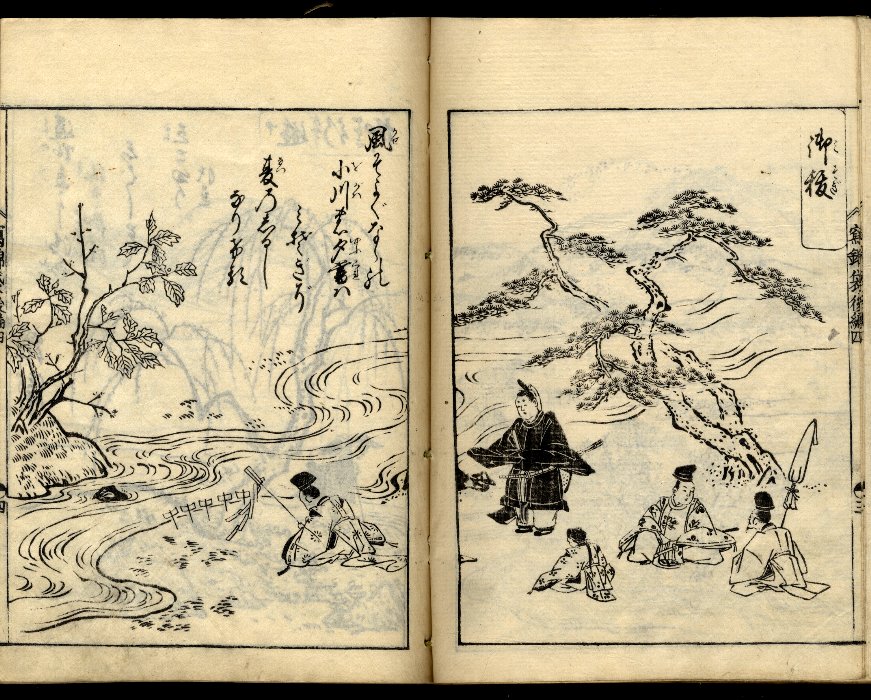 御祓
風そよぐならの
小川の夕暮は
みそぎぞ
夏のしるし
なりける